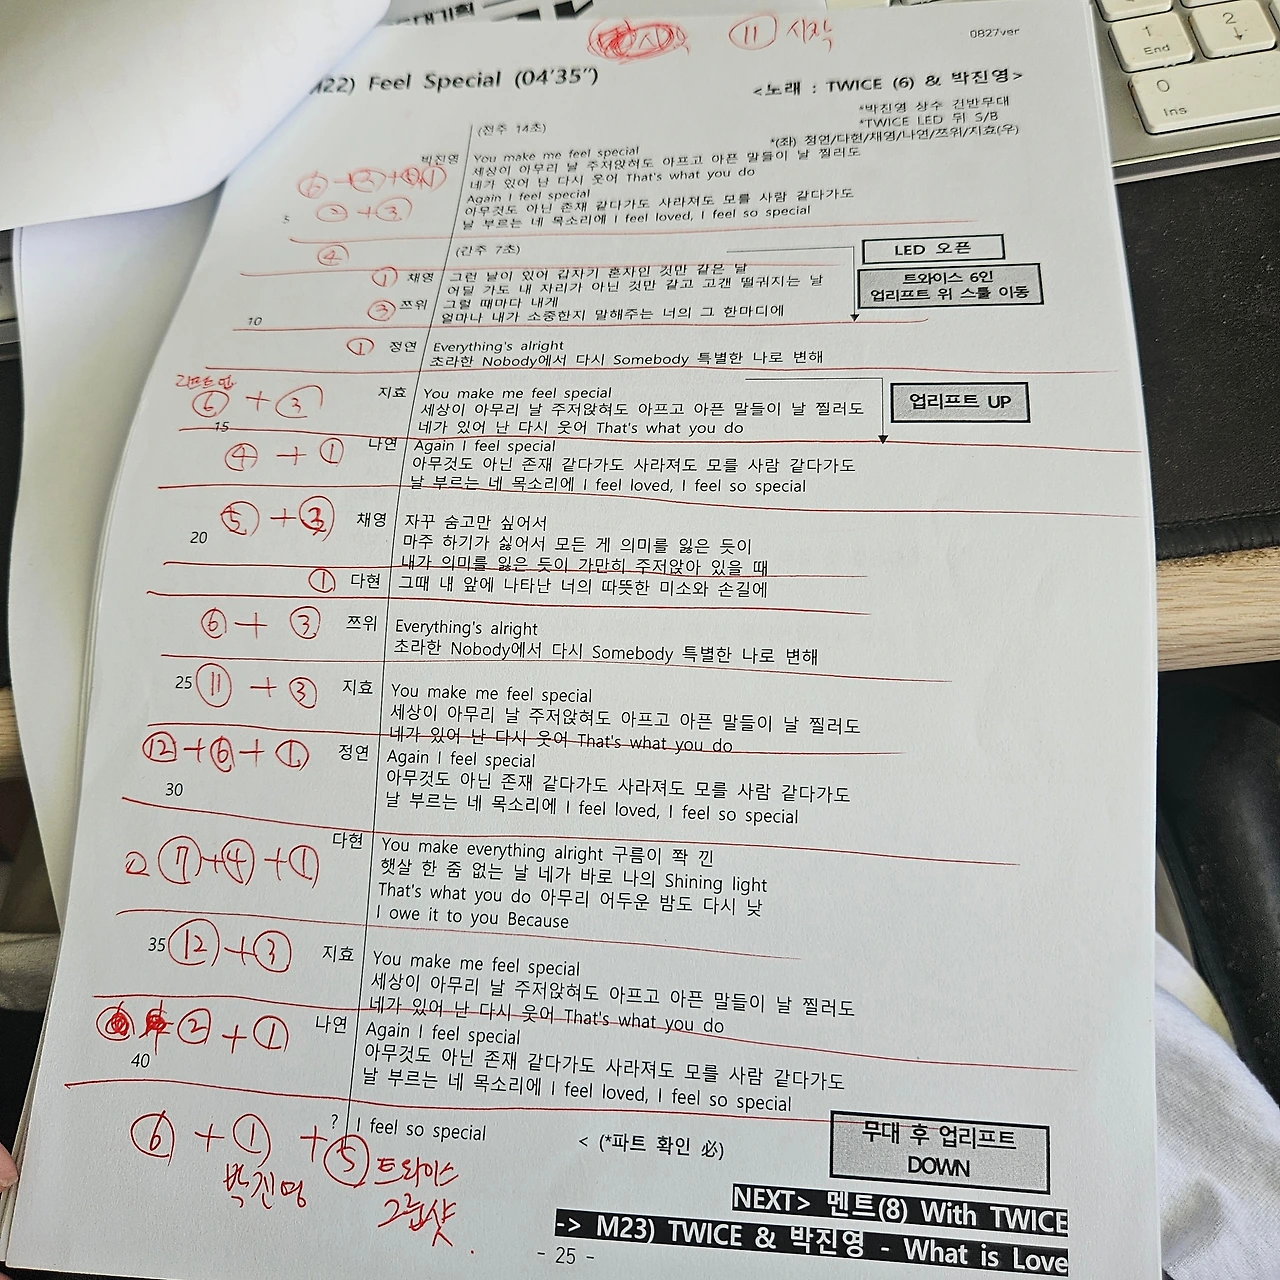 ⑪ 시작
0827ver
M22) Feel Special (04'35")
<노래 : TWICE (6) & 박진영>
*박진영 상수 건반무대
*TWICE LED 뒤 S/B
*(좌) 정연/다현/채영/나연/쯔위/지효(우)
(전주 14초)
박진영 You make me feel special
세상이 아무리 날 주저앉혀도 아프고 아픈 말들이 날 찔러도
⑥ - ② + ① 네가 있어 난 다시 웃어 That's what you do
Again I feel special
② + ③ 아무것도 아닌 존재 같다가도 사라져도 모를 사람 같다가도
5 날 부르는 네 목소리에 I feel loved, I feel so special
④ (간주 7초)
LED 오픈
① 채영 그런 날이 있어 갑자기 혼자인 것만 같은 날
어딜 가도 내 자리가 아닌 것만 같고 고갠 떨궈지는 날
트와이스 6인
업리프트 위 스툴 이동
③ 쯔위 그럴 때마다 내게
10 얼마나 내가 소중한지 말해주는 너의 그 한마디에
① 정연 Everything's alright
초라한 Nobody에서 다시 Somebody 특별한 나로 변해
리프트만
⑥ + ③ 지효 You make me feel special
세상이 아무리 날 주저앉혀도 아프고 아픈 말들이 날 찔러도
15 네가 있어 난 다시 웃어 That's what you do
업리프트 UP
④ + ① 나연 Again I feel special
아무것도 아닌 존재 같다가도 사라져도 모를 사람 같다가도
날 부르는 네 목소리에 I feel loved, I feel so special
⑤ + ③ 채영 자꾸 숨고만 싶어서
20 마주 하기가 싫어서 모든 게 의미를 잃은 듯이
내가 의미를 잃은 듯이 가만히 주저앉아 있을 때
① 다현 그때 내 앞에 나타난 너의 따뜻한 미소와 손길에
⑥ + ③ 쯔위 Everything's alright
초라한 Nobody에서 다시 Somebody 특별한 나로 변해
25 ⑪ + ③ 지효 You make me feel special
세상이 아무리 날 주저앉혀도 아프고 아픈 말들이 날 찔러도
네가 있어 난 다시 웃어 That's what you do
⑫ + ⑥ + ① 정연 Again I feel special
아무것도 아닌 존재 같다가도 사라져도 모를 사람 같다가도
30 날 부르는 네 목소리에 I feel loved, I feel so special
⑦ + ④ + ① 다현 You make everything alright 구름이 쫙 낀
햇살 한 줌 없는 날 네가 바로 나의 Shining light
That's what you do 아무리 어두운 밤도 다시 낮
I owe it to you Because
35 ⑫ + ③ 지효 You make me feel special
세상이 아무리 날 주저앉혀도 아프고 아픈 말들이 날 찔러도
네가 있어 난 다시 웃어 That's what you do
② + ① 나연 Again I feel special
40 아무것도 아닌 존재 같다가도 사라져도 모를 사람 같다가도
날 부르는 네 목소리에 I feel loved, I feel so special
? I feel so special < (*파트 확인 必)
⑥ + ① + ⑤ 트와이스
박진영 그룹샷.
무대 후 업리프트
DOWN
NEXT> 멘트(8) With TWICE
-> M23) TWICE & 박진영 - What is Love
- 25 -
1
End
2
0
Ins